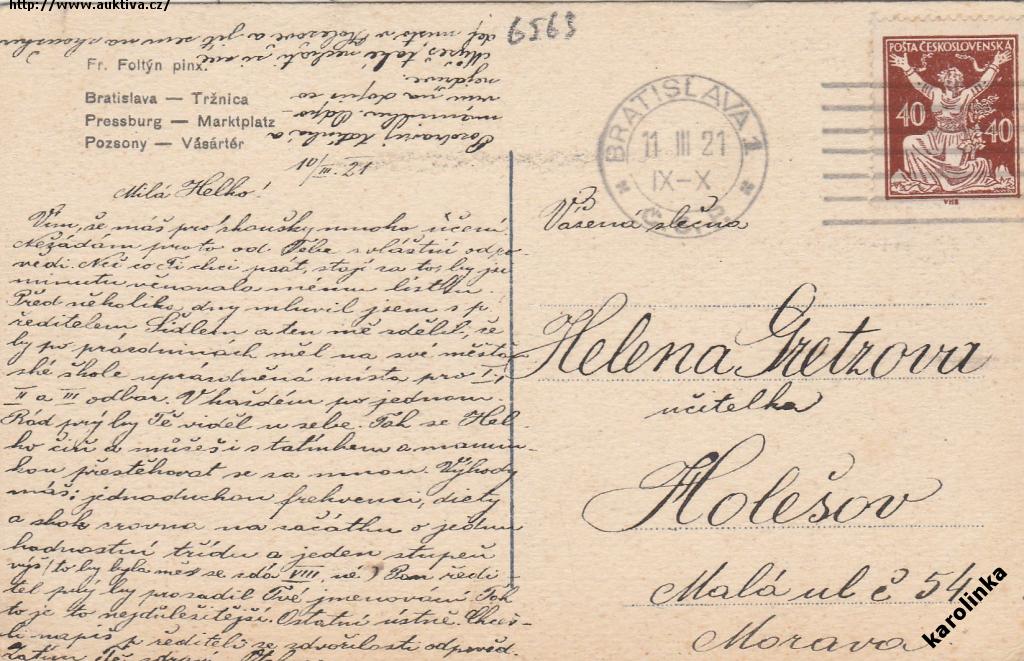 http://www.auktiva.cz/
6563
Fr. Foltýn pinx.
Bratislava — Tržnica
Pressburg — Marktplatz
Pozsony — Vásártér
BRATISLAVA 1
11 III 21
IX-X
POŠTA ČESKOSLOVENSKÁ
40 40
VHB
10/III. 21
Milá Helko!
Vím, že máš pro zkoušky mnoho učení.
Nežádám proto od Tebe zvláštní odpo-
vědi. Než co Ti chci psát, stojí za to, by jsi
minutu věnovala mému lístku.
Před několika dny mluvil jsem s p.
ředitelem a ten mě sdělil, že
by po prázdninách měl na své měšťan-
ské škole uprázdněná místa pro I,
II a III odbor. V každém po jednom.
Rád prý by Tě viděl u sebe. Tak se Hel-
ko čiň a můžeš i s tatínkem a mamin-
kou přestěhovat se za mnou. Výhody
máš: jednoduchou frekvenci, diety
a skok zrovna na začátku o jednu
hodnostní třídu a jeden stupeň
výš (to by byla měs. se zdá VIII, ne?) Pan ředi-
tel prý by prosadil Tvé jmenování. Tak
to je to nejdůležitější. Ostatní ústně. Chceš-
li napiš p. řediteli ze zdvořilosti odpověď.
Zatím Tě zdraví
Pozdravuj tatínka a
maminku.
Vážená slečna
Helena Gretzova
učitelka
Holešov
Malá ul č 54
Morava
karolinka